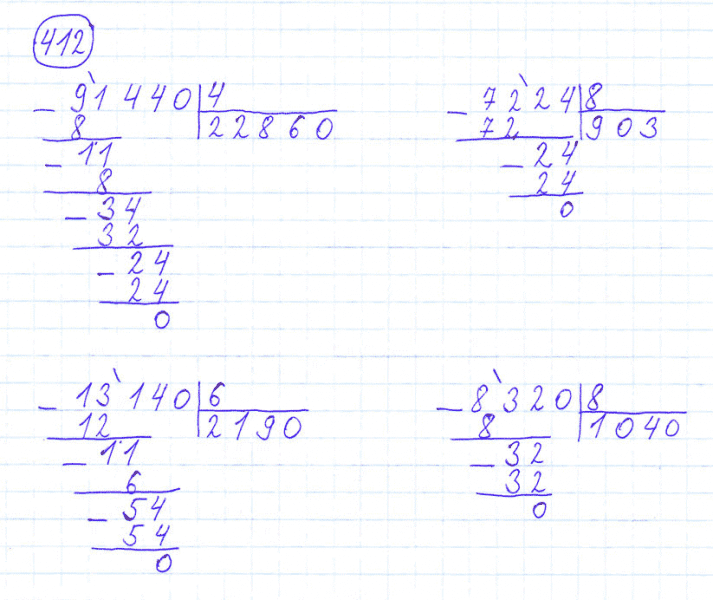 412
91440 | 4
8 | 22860
- 11
8
- 34
32
- 24
24
0
7224 | 8
72 | 903
- 24
24
0
13140 | 6
12 | 2190
- 11
6
- 54
54
0
8320 | 8
8 | 1040
- 32
32
0